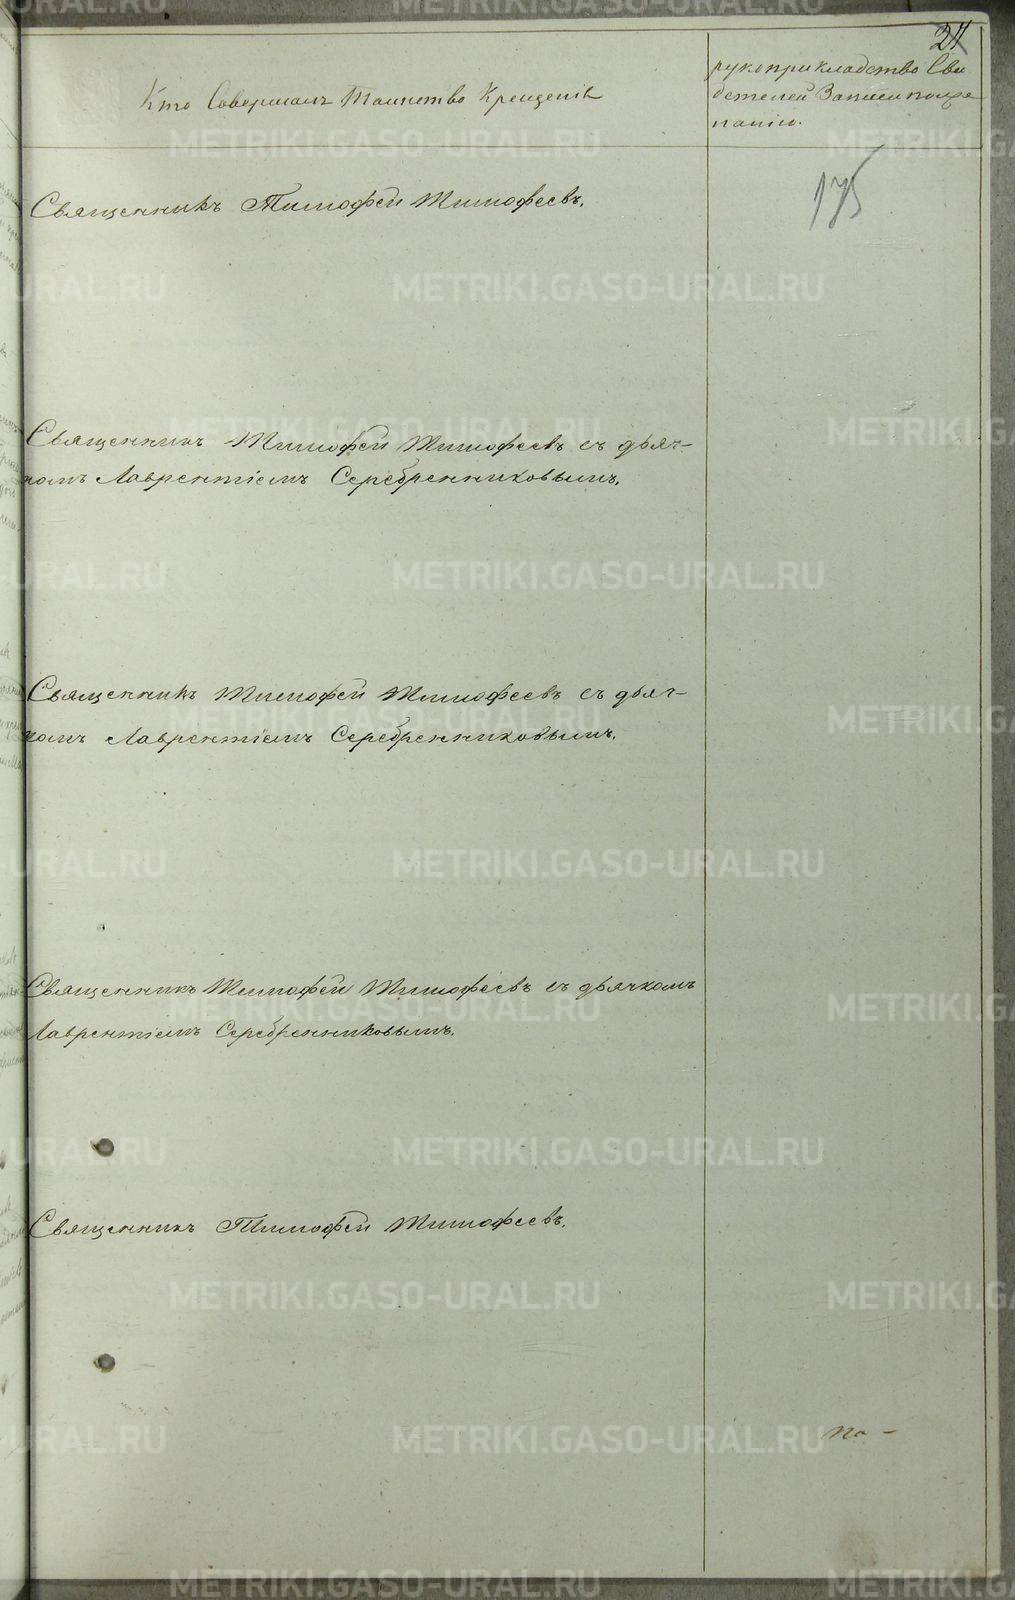 24
Кто Совершалъ Таинство Крещенія
рукоприкладство Сви
детелей Записи по же
ланію.
175
Священникъ Тимофей Тимофеевъ.
Священникъ Тимофей Тимофеевъ съ дьяч-
комъ Лаврентіемъ Серебренниковымъ.
Священникъ Тимофей Тимофеевъ съ дьяч-
комъ Лаврентіемъ Серебренниковымъ.
Священникъ Тимофей Тимофеевъ съ дьячкомъ
Лаврентіемъ Серебренниковымъ.
Священникъ Тимофей Тимофеевъ.
по -
METRIKI.GASO-URAL.RU